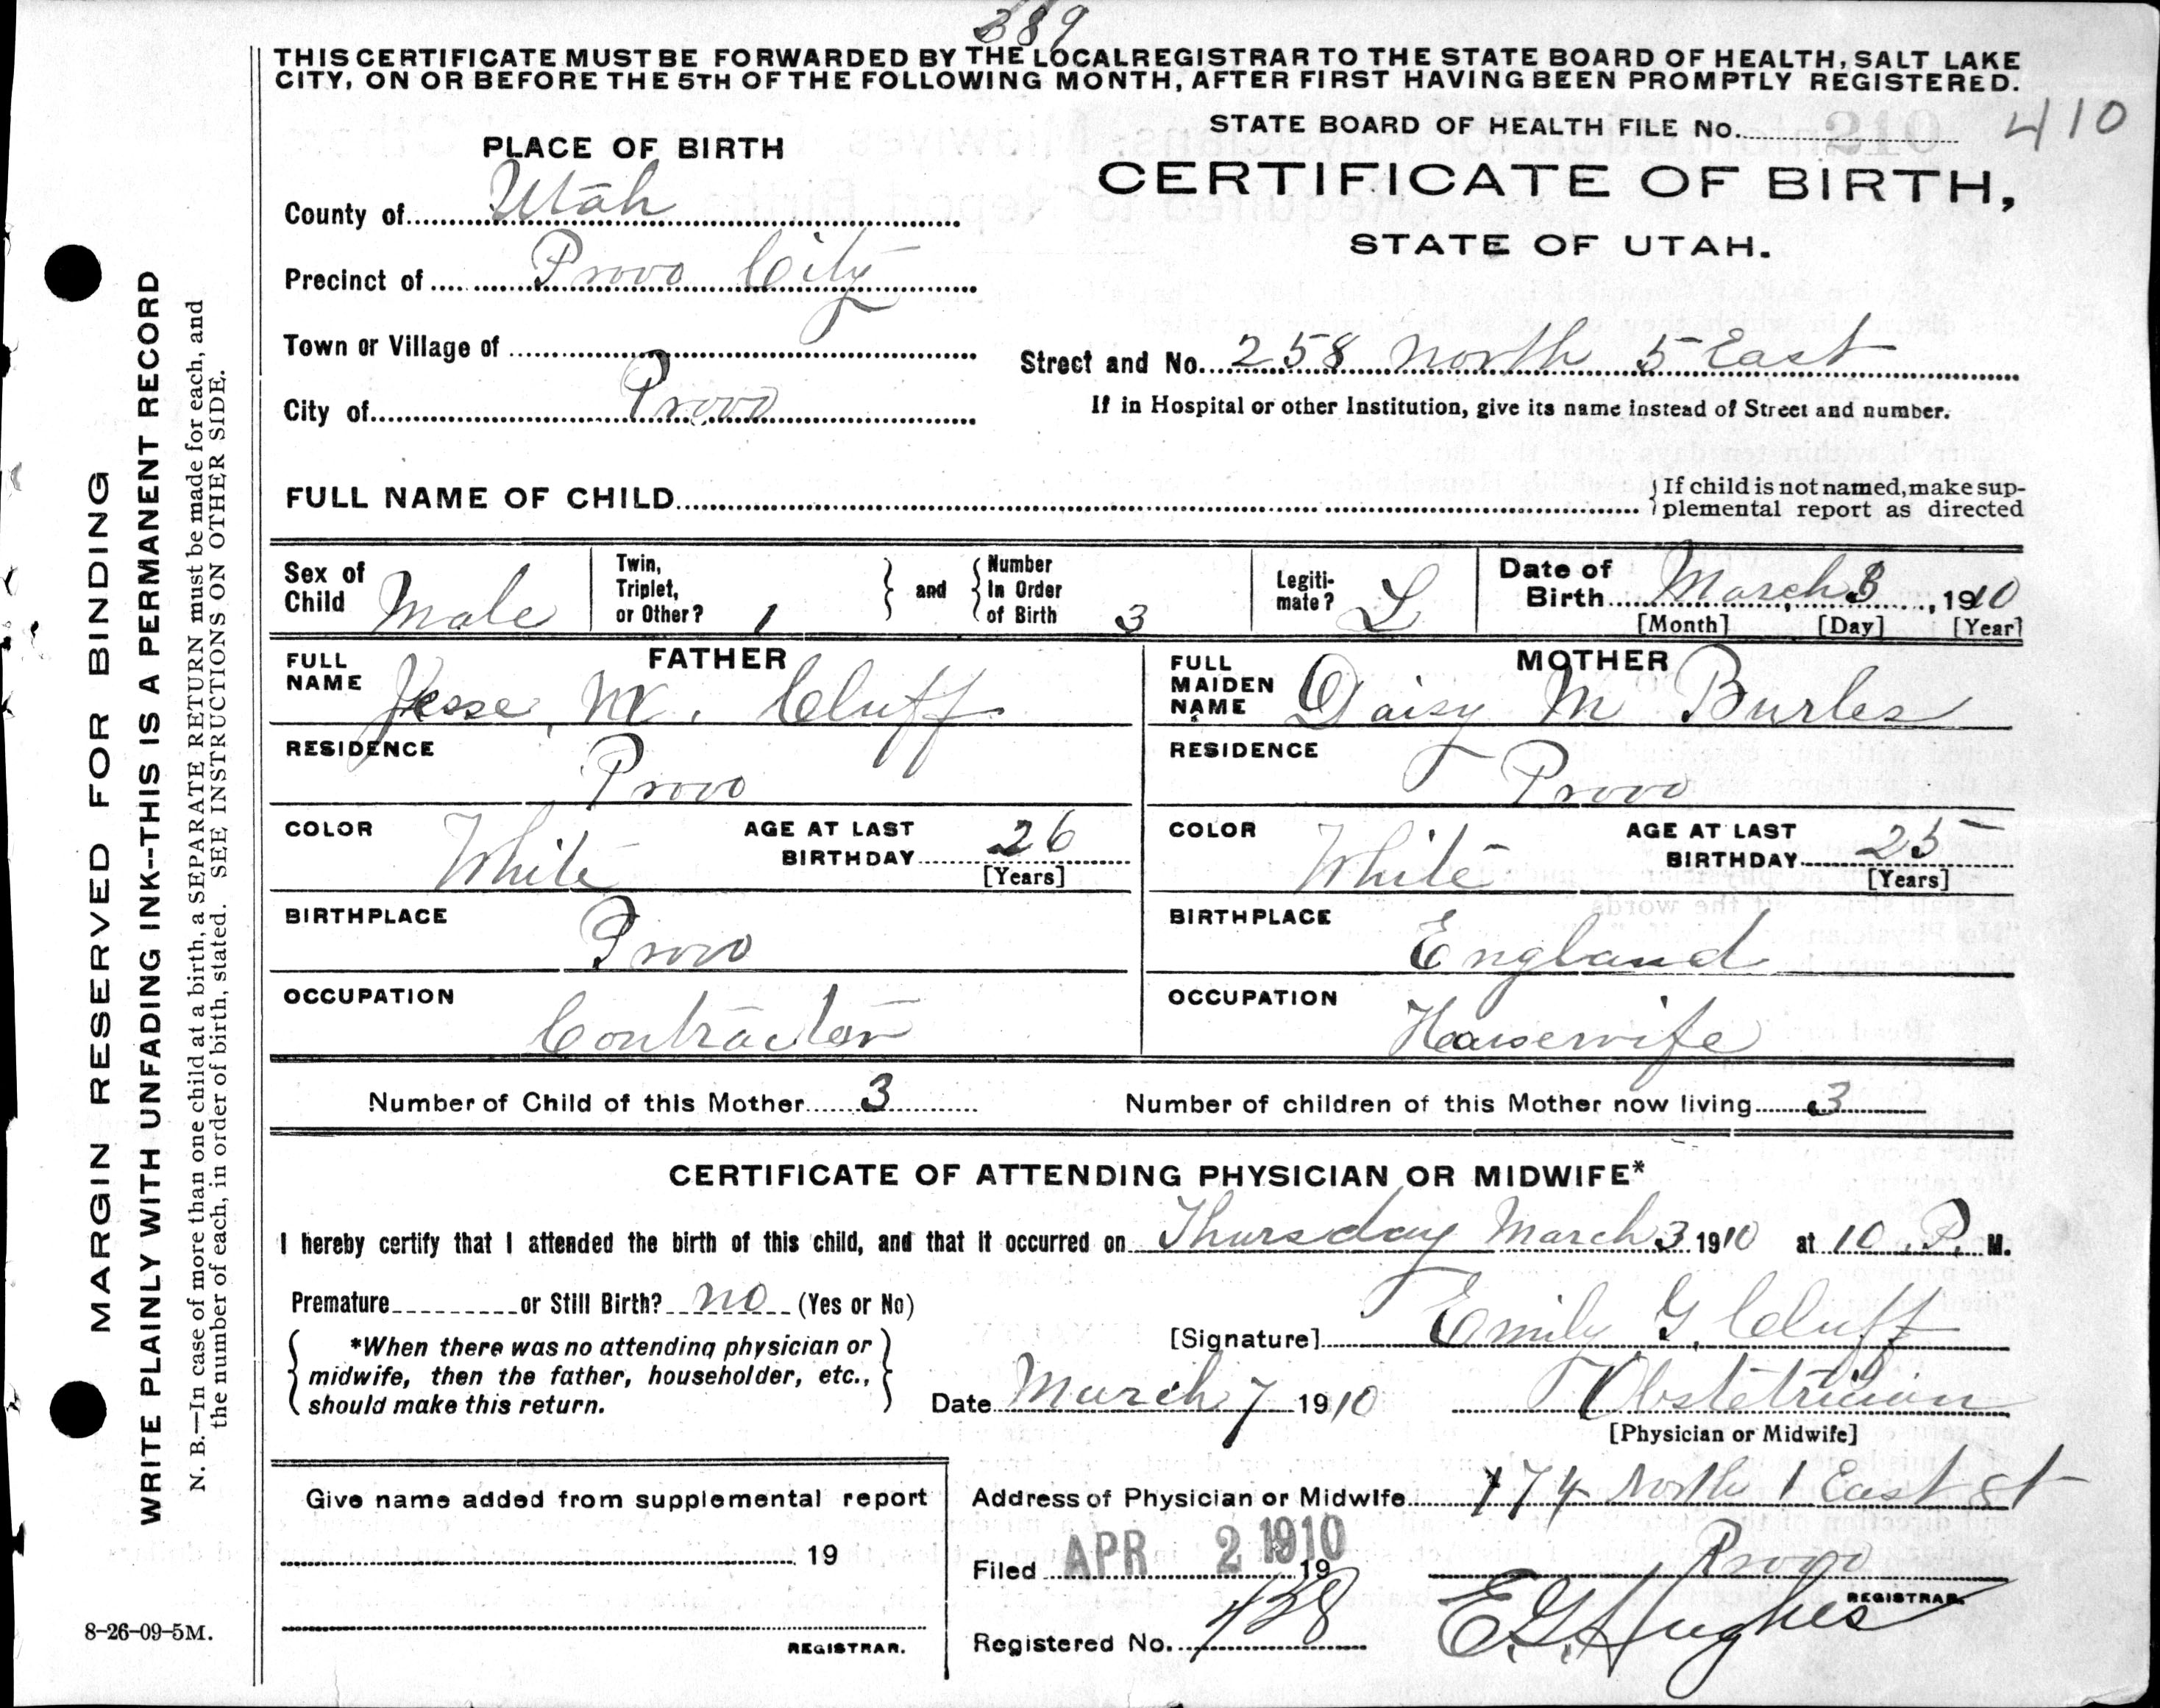 389
THIS CERTIFICATE MUST BE FORWARDED BY THE LOCAL REGISTRAR TO THE STATE BOARD OF HEALTH, SALT LAKE
CITY, ON OR BEFORE THE 5TH OF THE FOLLOWING MONTH, AFTER FIRST HAVING BEEN PROMPTLY REGISTERED.
STATE BOARD OF HEALTH FILE No. 210 410
PLACE OF BIRTH
CERTIFICATE OF BIRTH,
STATE OF UTAH.
County of Utah
Precinct of Provo City
Town or Village of
Street and No. 258 North 5 East
City of Provo
If in Hospital or other Institution, give its name instead of Street and number.
FULL NAME OF CHILD
If child is not named, make sup-
plemental report as directed
Sex of Child Male
Twin, Triplet, or Other? 1
and
Number In Order of Birth 3
Legiti-mate? L
Date of Birth March 3, 1910
[Month] [Day] [Year]
FATHER
FULL NAME Jesse M. Cluff
RESIDENCE Provo
COLOR White
AGE AT LAST BIRTHDAY 26
[Years]
BIRTHPLACE Provo
OCCUPATION Contractor
MOTHER
FULL MAIDEN NAME Daisy M Burles
RESIDENCE Provo
COLOR White
AGE AT LAST BIRTHDAY 25
[Years]
BIRTHPLACE England
OCCUPATION Housewife
Number of Child of this Mother 3
Number of children of this Mother now living 3
CERTIFICATE OF ATTENDING PHYSICIAN OR MIDWIFE*
I hereby certify that I attended the birth of this child, and that it occurred on Thursday March 3 1910 at 10 P. M.
Premature or Still Birth? no (Yes or No)
*When there was no attending physician or
midwife, then the father, householder, etc.,
should make this return.
[Signature] Emily G. Cluff
Date March 7 1910
Obstetrician
[Physician or Midwife]
Give name added from supplemental report
19
REGISTRAR.
Address of Physician or Midwife 174 North 1 East St
Provo
Filed APR 2 1910 19
E. G. Hughes
REGISTRAR.
Registered No. 438
MARGIN RESERVED FOR BINDING
WRITE PLAINLY WITH UNFADING INK--THIS IS A PERMANENT RECORD
N. B.—In case of more than one child at a birth, a SEPARATE RETURN must be made for each, and
the number of each, in order of birth, stated. SEE INSTRUCTIONS ON OTHER SIDE.
8-26-09-5M.